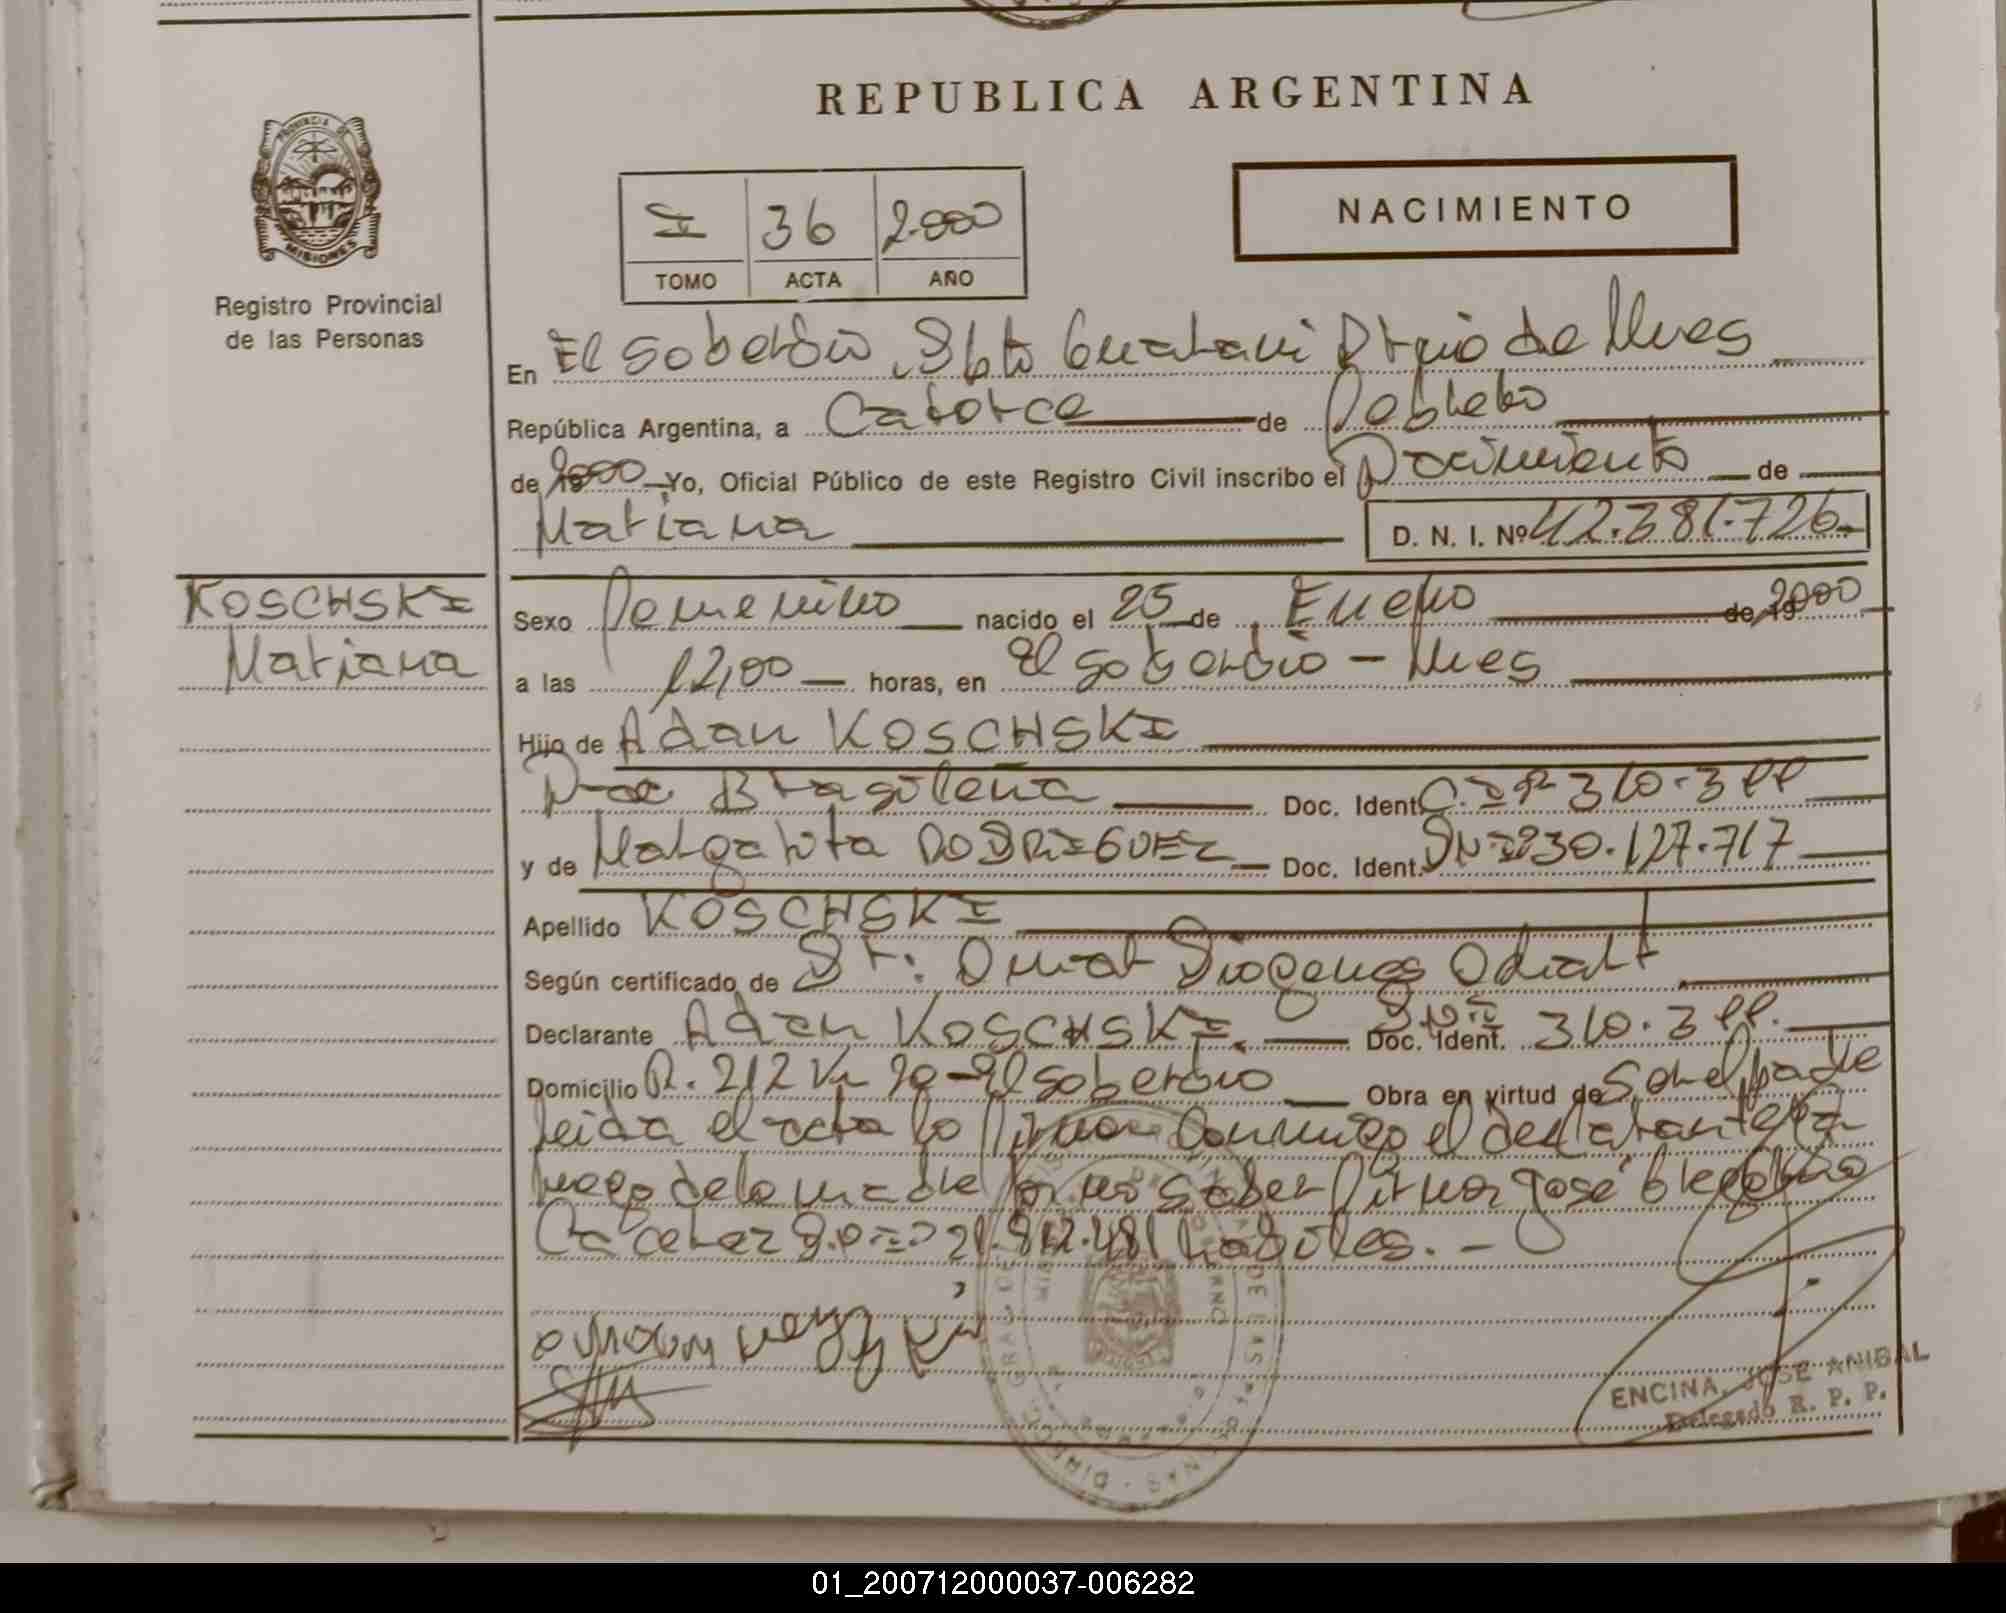 REPUBLICA ARGENTINA
PROVINCIA DE
MISIONES
Registro Provincial
de las Personas
I 36 2.000
TOMO ACTA AÑO
NACIMIENTO
En El Soberbio, Dpto Guarani Prcio de Mnes
República Argentina, a Catorce de Febrero
de 2000 Yo, Oficial Público de este Registro Civil inscribo el Nacimiento de
Mariana D. N. I. Nº 42.381.726
KOSCHSKI
Mariana
Sexo Femenino nacido el 25 de Enero de 19 2000
a las 12,00 horas, en El Soberbio - Mnes
Hijo de Adan KOSCHSKI
Nac. Brasileña Doc. Ident. C.I.Nº 310.399
y de Margarita RODRIGUEZ Doc. Ident. DNIº 30.127.717
Apellido KOSCHSKI
Según certificado de Dr. Omar Diogenes Odiart
Declarante Adan KOSCHSKI. Doc. Ident. 310.399.
Domicilio R. 212 Km 20 - El Soberbio Obra en virtud de Ser el padre
leida el acta lo firman conmigo el declarante
ruego de la madre por no saber firmar José Gregorio
21.812.481 habiles. -
ENCINA, JOSE ANIBAL
Delegado R. P. P.
01_200712000037-006282